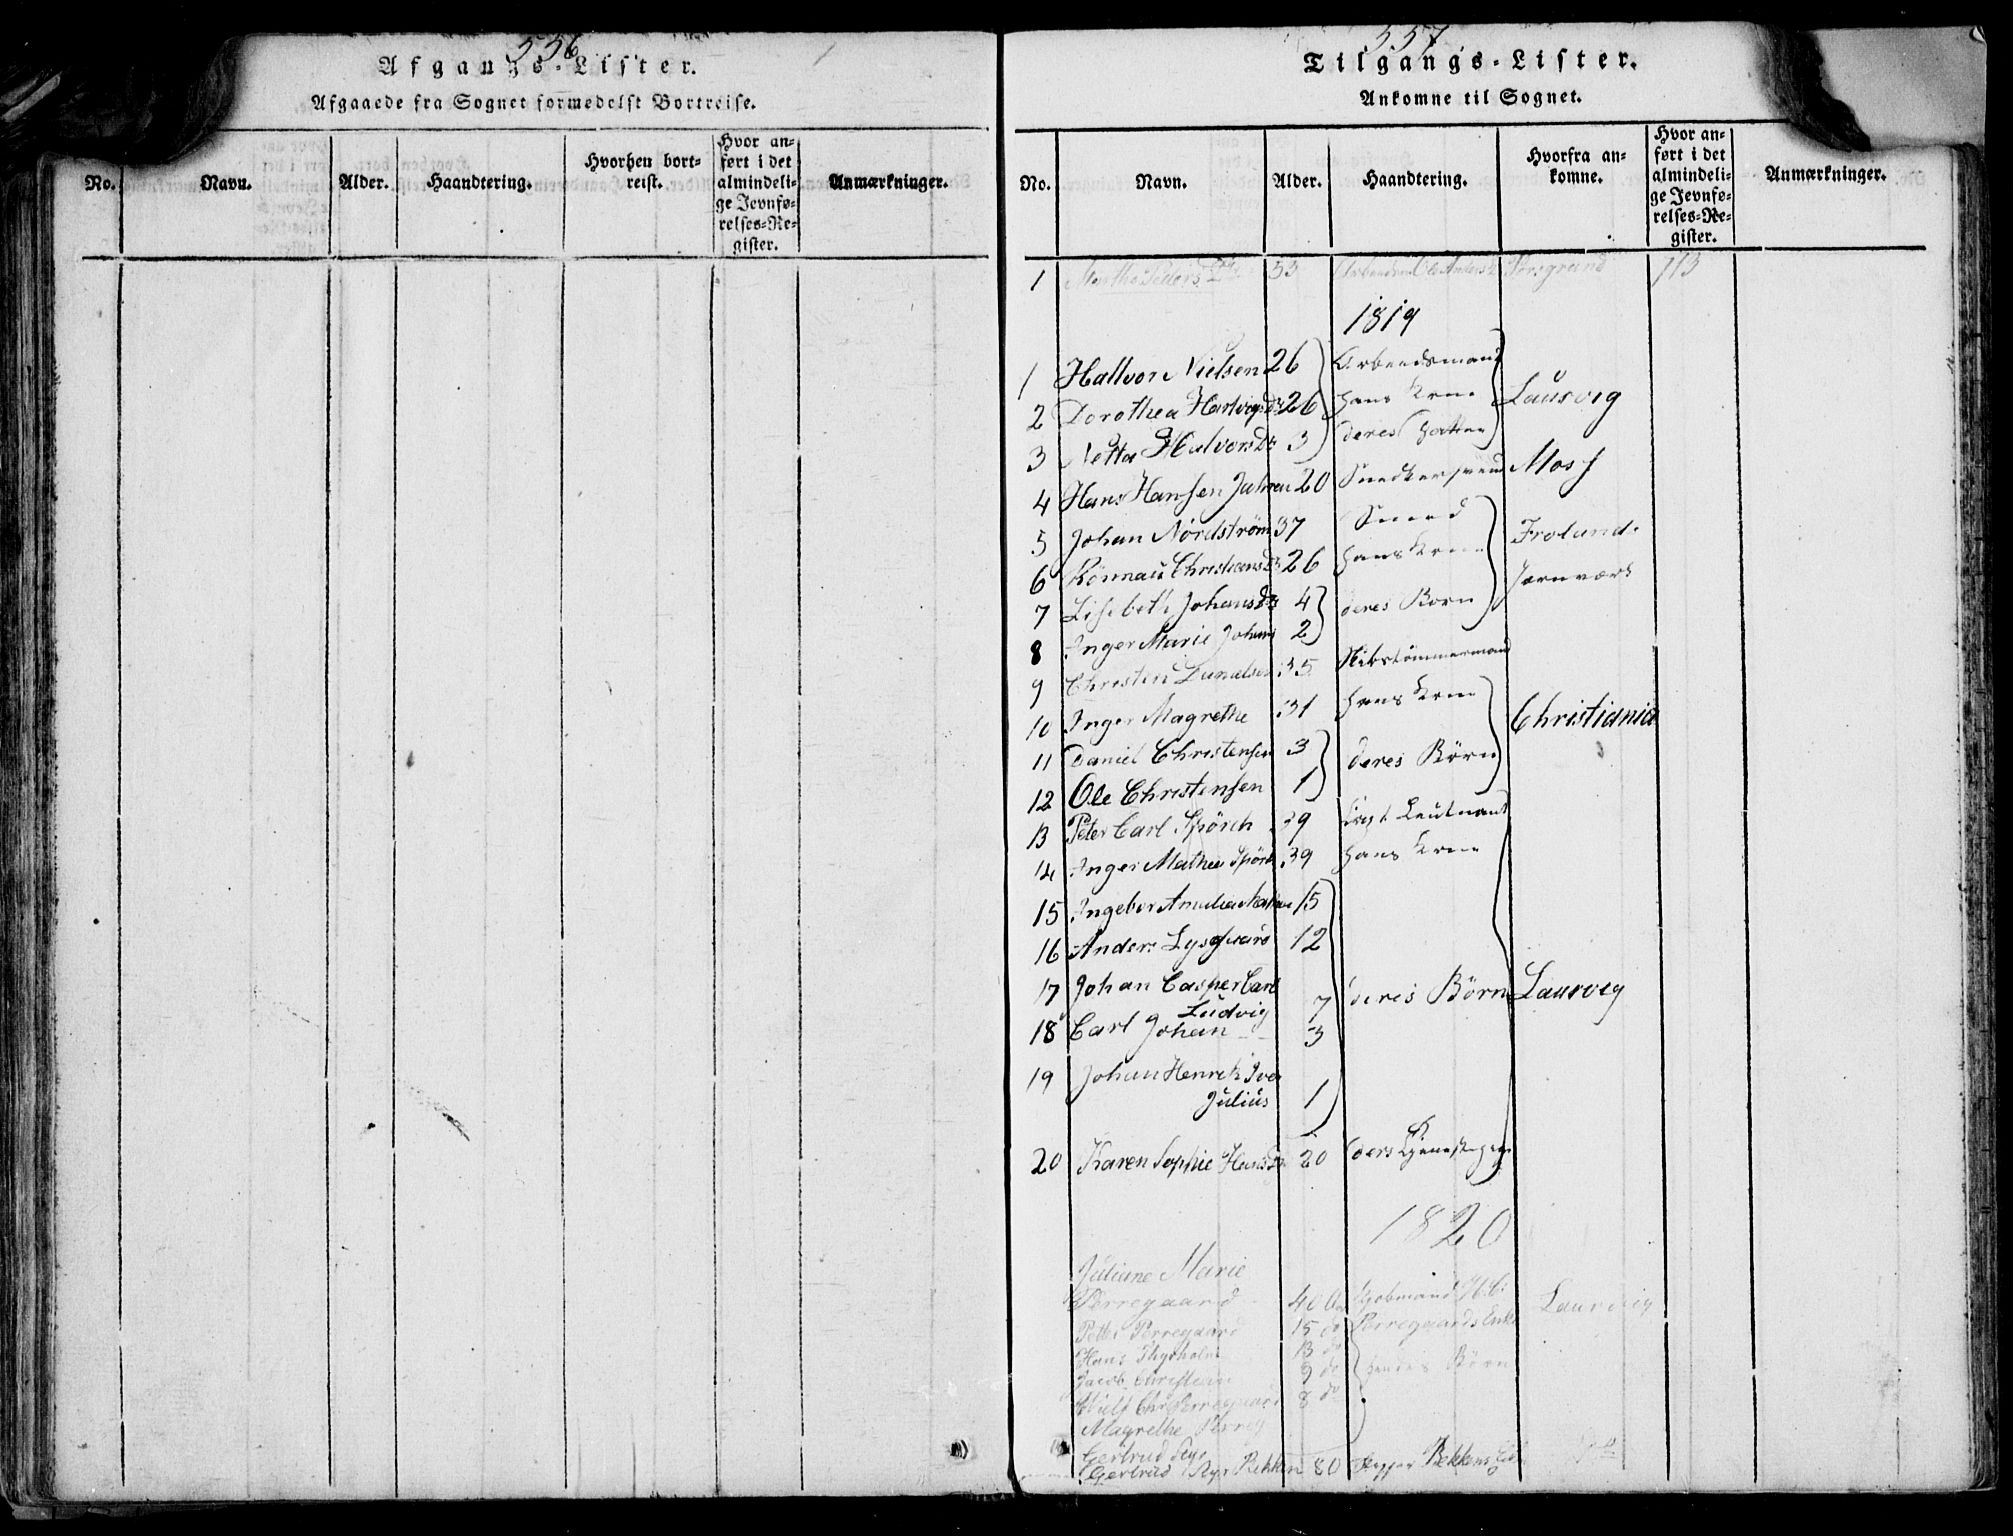 556
Afgangs-Lister.
Afgaaede fra Sognet formedelst Bortreise.
No. Navn. Alder. Haandtering. Hvorhen bortreist. Hvor anført i det almindelige Jevnførelses-Register. Anmærkninger.
557
Tilgangs-Lister.
Ankomne til Sognet.
No. Navn. Alder. Haandtering. Hvorfra ankomne. Hvor anført i det almindelige Jevnførelses-Register. Anmærkninger.
1 Marthe Peders Dtr 53 Porsgrund 113
1819
1 Hallvor Nielsen 26 Arbeidsmand
2 Dorothea Hartvigsdtr 26 hans Kone Laurvig
3 Netta Halvorsdtr 3 deres Datter
4 Hans Hansen Jahren 20 Snedkersvend Moss
5 Johan Nordstrøm 37 Smed Froland
6 Rönnau Christiansdtr 26 hans Kone Jernværk
7 Lisebeth Johansdtr 4 deres Børn
8 Inger Marie Johans 2
9 Christen Danielsen 35 Skibstømmermand
10 Inger Magrethe 31 hans Kone Christiania
11 Daniel Christensen 3 deres Børn
12 Ole Christensen 1
13 Peter Carl Spörch 39 Leutnant
14 Inger Mathea Spörch 39 hans Kone
15 Ingebor Amalia 15
16 Anders Lysgaard 12
17 Johan Casper Carl
Ludvig 7 deres Börn Laurvig
18 Carl Johan 3
19 Johan Henrik Iver
Julius 1
20 Karen Sophie Hansdtr 20 deres Tjenestepige
1820
Juliane Marie
Perregaard 40 Aar Kjøbmand Laurvig
Petter Perregaard 15 do Perregaards Enke
Hans Thyrholm 13 do
Jacob Christian 9 do hendes Börn
Chr Perregaard 8 do
Magrethe Perreg
Gertrud
Gertrud Bekken 80 Bekkens